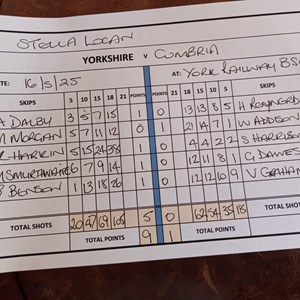 STELLA LOGAN
YORKSHIRE v CUMBRIA
DATE: 16/5/25 AT: YORK RAILWAY
SKIPS 5 10 15 18 21 POINTS POINTS 21 18 15 10 5 SKIPS
DALBY 3 5 7 15 1 0 13 13 8 5 H
MORGAN 5 7 11 12 0 1 21 14 7 1 W ADDISON
5 15 24 38 1 0 4 4 2 2 S HARRISON
6 7 9 14 12 11 8 1 G DAWES
BENSON 1 13 18 26 1 0 12 12 10 9 V GRAHAM
TOTAL SHOTS 20 47 69 105 5 0 62 54 35 18 TOTAL SHOTS
TOTAL POINTS 9 1 TOTAL POINTS